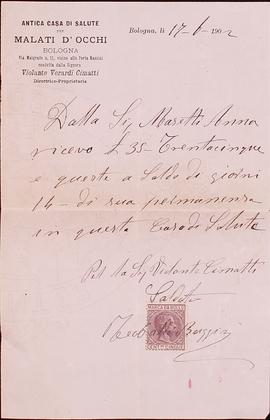 ANTICA CASA DI SALUTE
PER
MALATI D'OCCHI
BOLOGNA
Via Malgrado n. 11, vicino alla Porta Mazzini
condotta dalla Signora
Violante Verardi Cimatti
Direttrice-Proprietaria
Bologna, li 17-6-1902
Dalla Sig Masetti Anna
ricevo £ 35 Trentacinque
e queste a Saldo di giorni
14 - di sua permanenza
in questa Casa di Salute
Per la Sig Violante Cimatti
Saluti
MARCA DA BOLLO
CENT.MI CINQUE